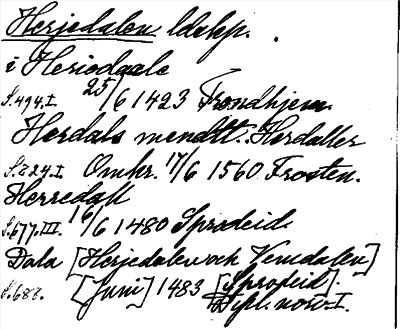 Herjedalen ldskp.
i Heriedaale
S.494.I. 25/6 1423 Trondhjem.
Herdals mendtt. Herdaller
S.224.I. Omkr. 17/6 1560 Frosten.
Herredall
S.677.III. 16/6 1480 Sprodeid.
Dala [Herjedalen och Vemdalen]
S.682. [Juni] 1483 [Sprodeid].
Dipl. norv. I.